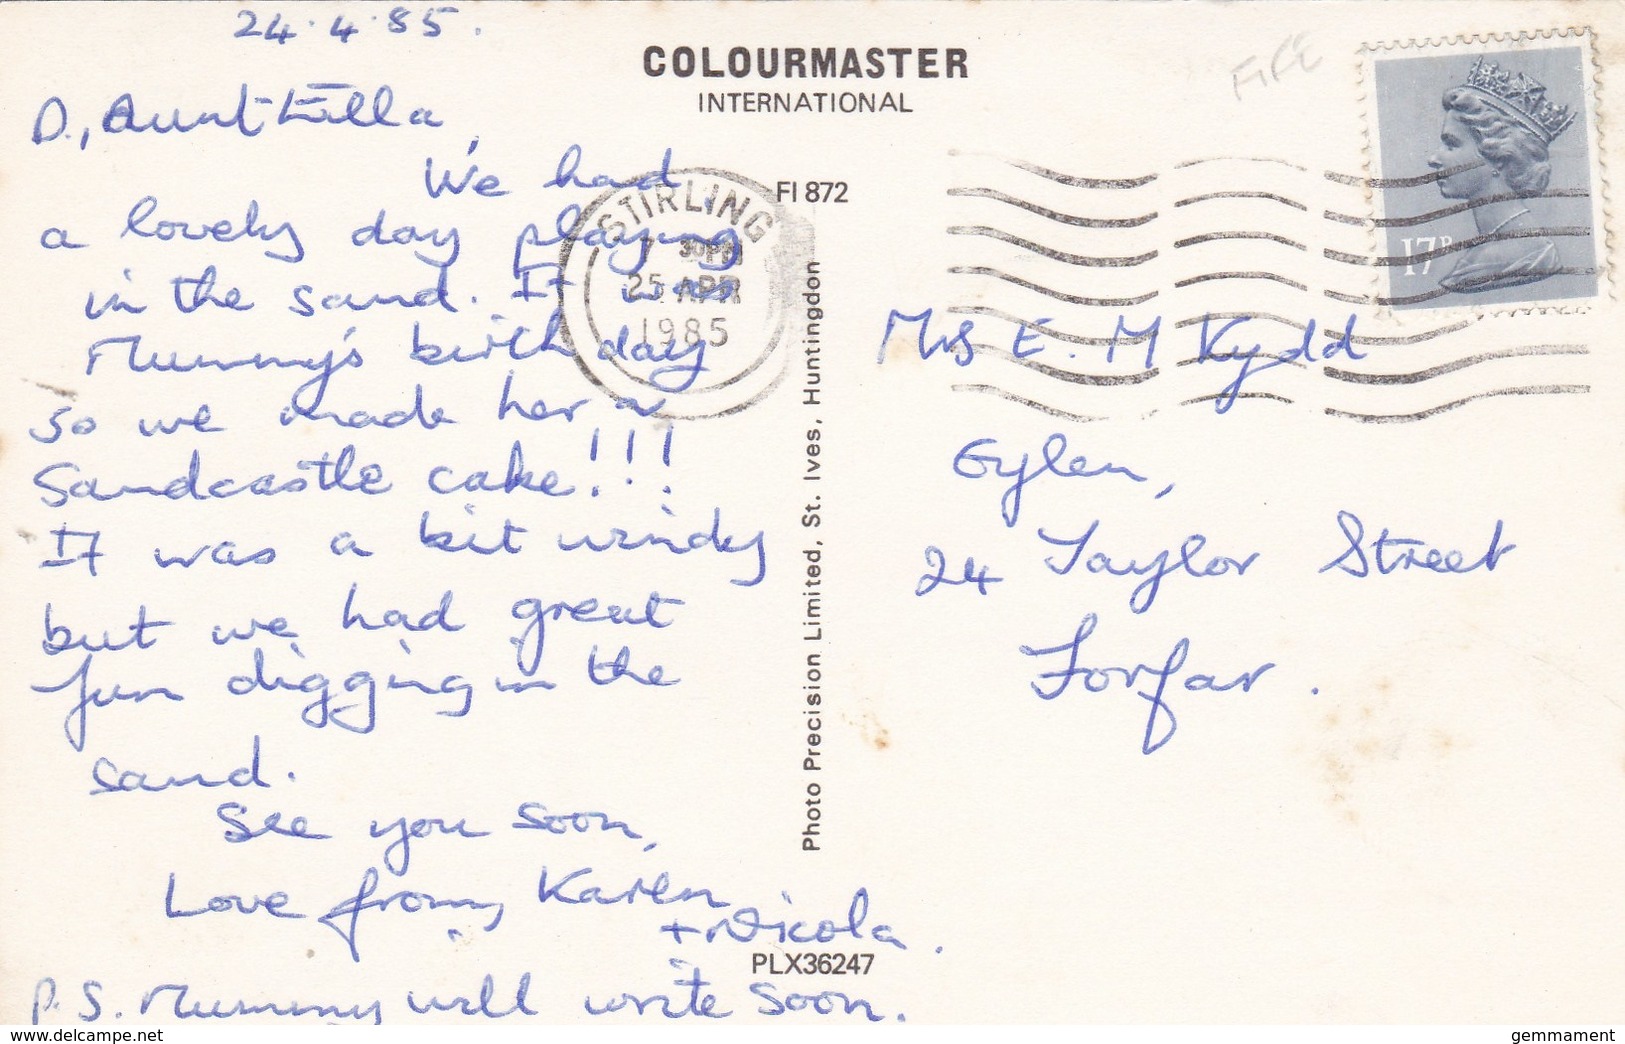 24.4.85.
D., Aunt Ella,
We had
a lovely day playing
in the sand. It was
Mummy's birthday
so we made her a
Sandcastle cake!!!
It was a bit windy
but we had great
fun digging in the
sand.
See you soon,
Love from, Karen
+ Nicola.
P.S. Mummy will write soon.
COLOURMASTER
INTERNATIONAL
FI 872
STIRLING
7 30PM
25 APR
1985
Photo Precision Limited, St. Ives, Huntingdon
PLX36247
FIFE
17P
Mrs E. M Kydd
Eylen,
24 Taylor Street
Forfar.
www.delcampe.net
gemmament